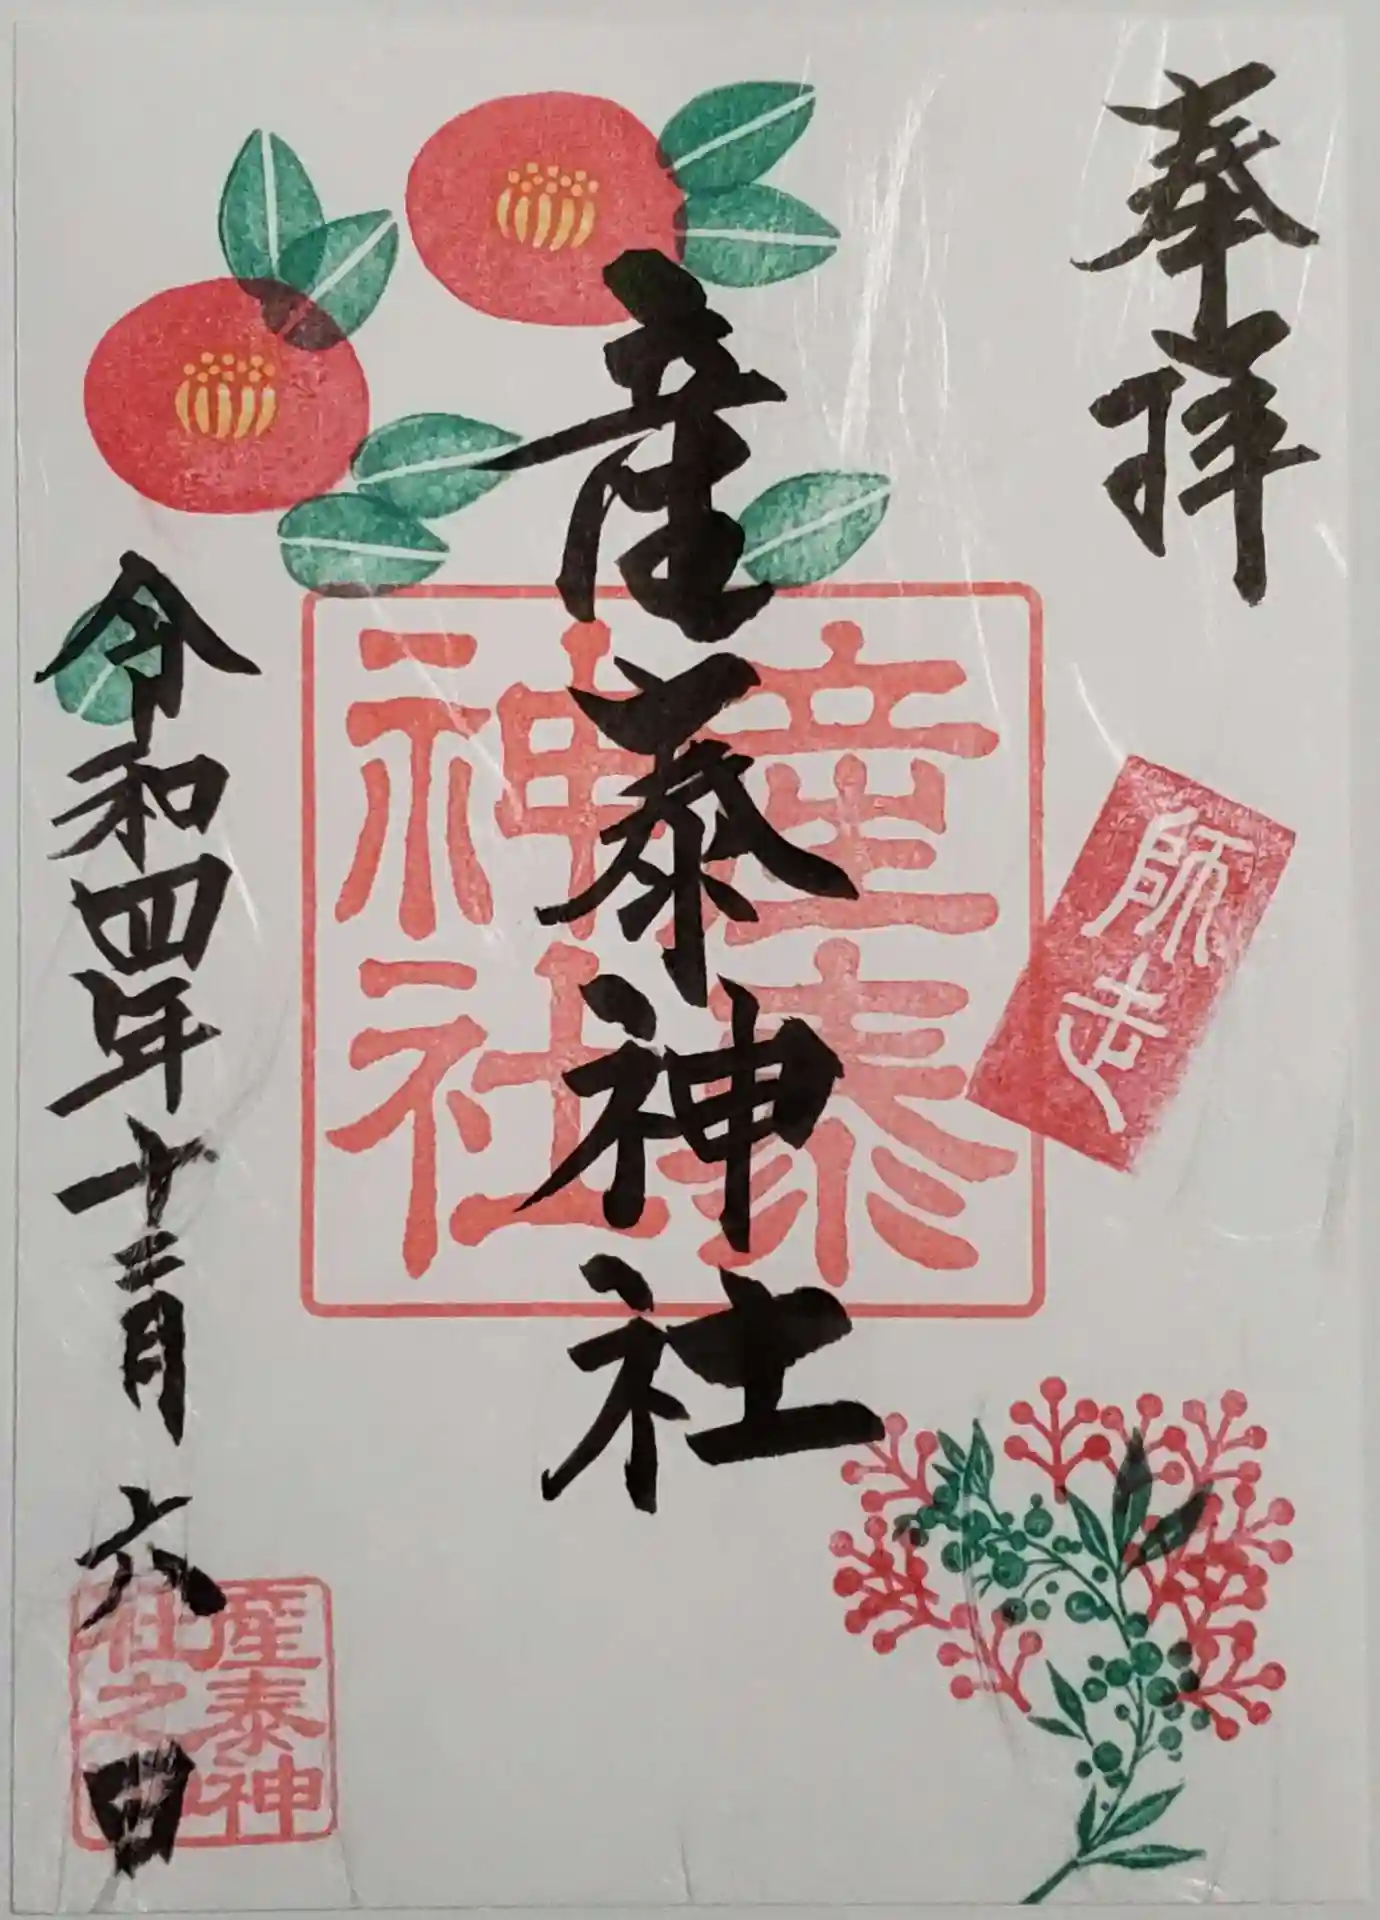 奉拝
師走
産泰神社
産泰
神社
令和四年十二月六日
産泰神
社之